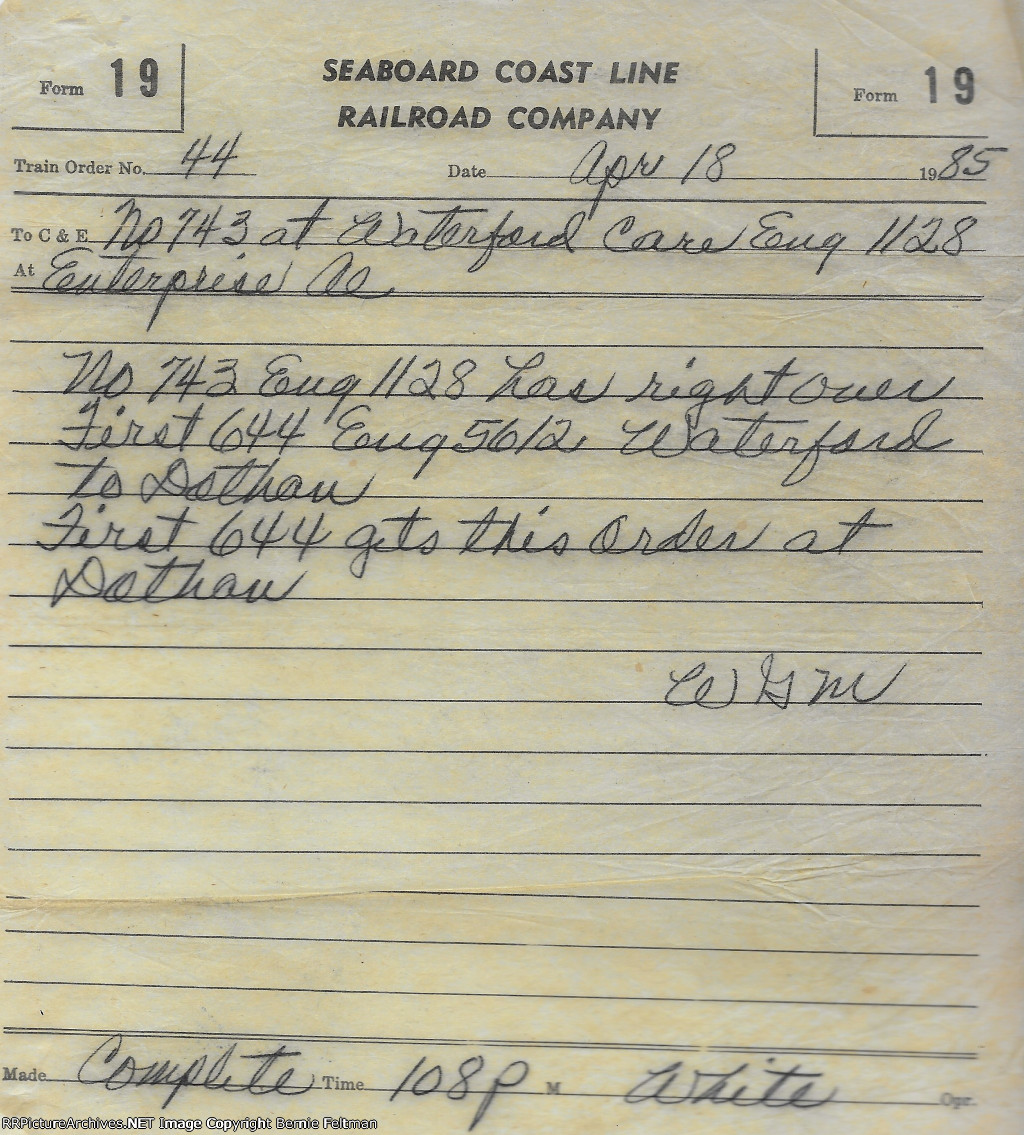 Form 19
SEABOARD COAST LINE
RAILROAD COMPANY
Form 19
Train Order No. 44 Date Apr 18 1985
To C & E No 743 at Waterford Care Eng 1128
At Enterprise Al
No 743 Eng 1128 has right over
First 644 Eng 5612 Waterford
to Dothan
First 644 gets this Order at
Dothan
W G M
Made Complete Time 108 P M White Opr.
RRPictureArchives.NET Image Copyright Bernie Feltman